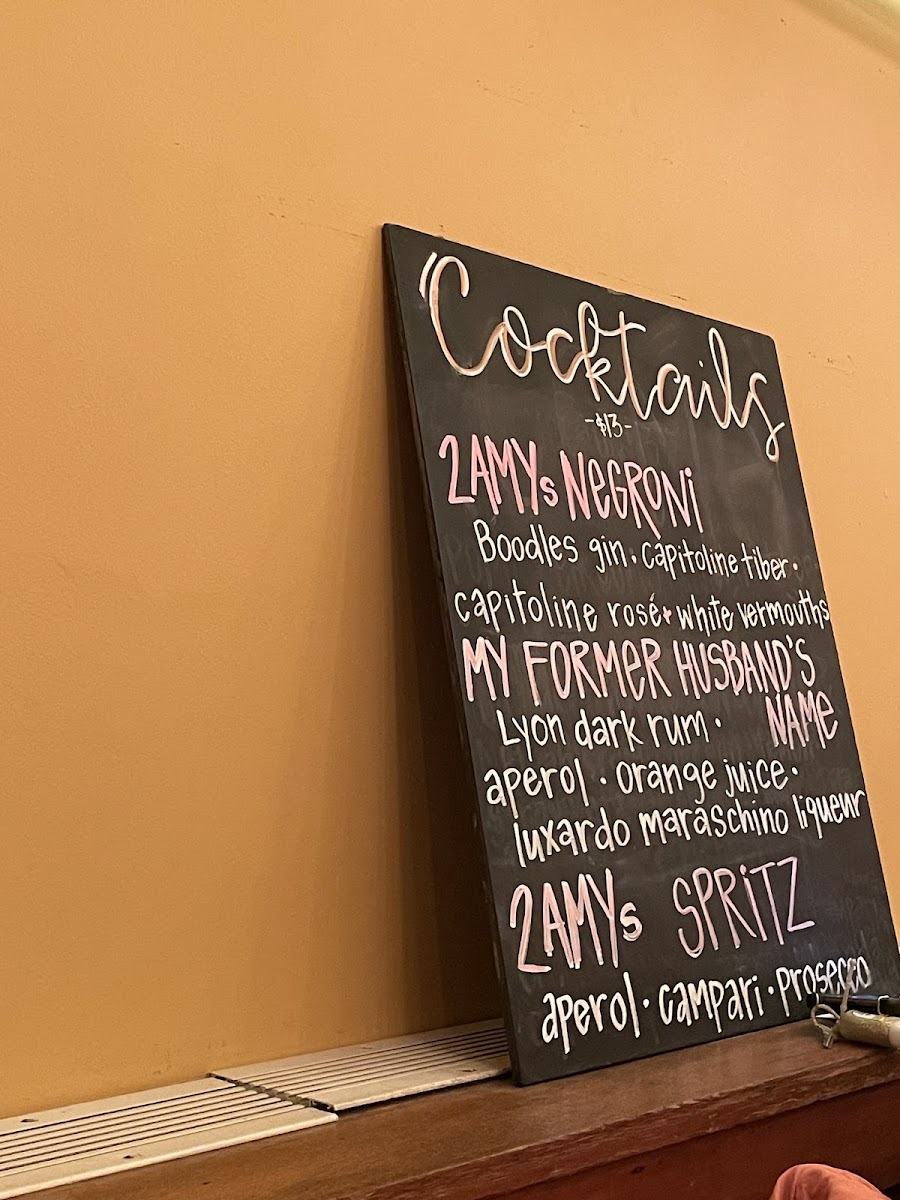 Cocktails
-$13-
2AMYs NEGRONi
Boodles gin · capitoline tiber ·
capitoline rosé + white vermouths
MY FORMER HUSBAND'S
NAME
Lyon dark rum ·
aperol · orange juice ·
luxardo maraschino liqueur
2AMYs SPRiTZ
aperol · campari · prosecco